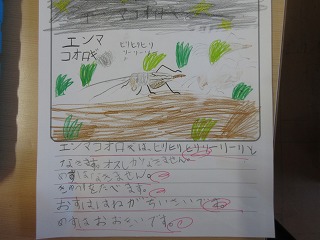 エンマコオロギ
エンマ
コオロギ
ヒリヒリヒリ
リーリーリー
エンマコオロギは、ヒリヒリヒリーリーリと
なきます。オスしかなきません。
めすはなきません。
きのみをたべます。
おすははねがちいさいです
めすはおおきいです。